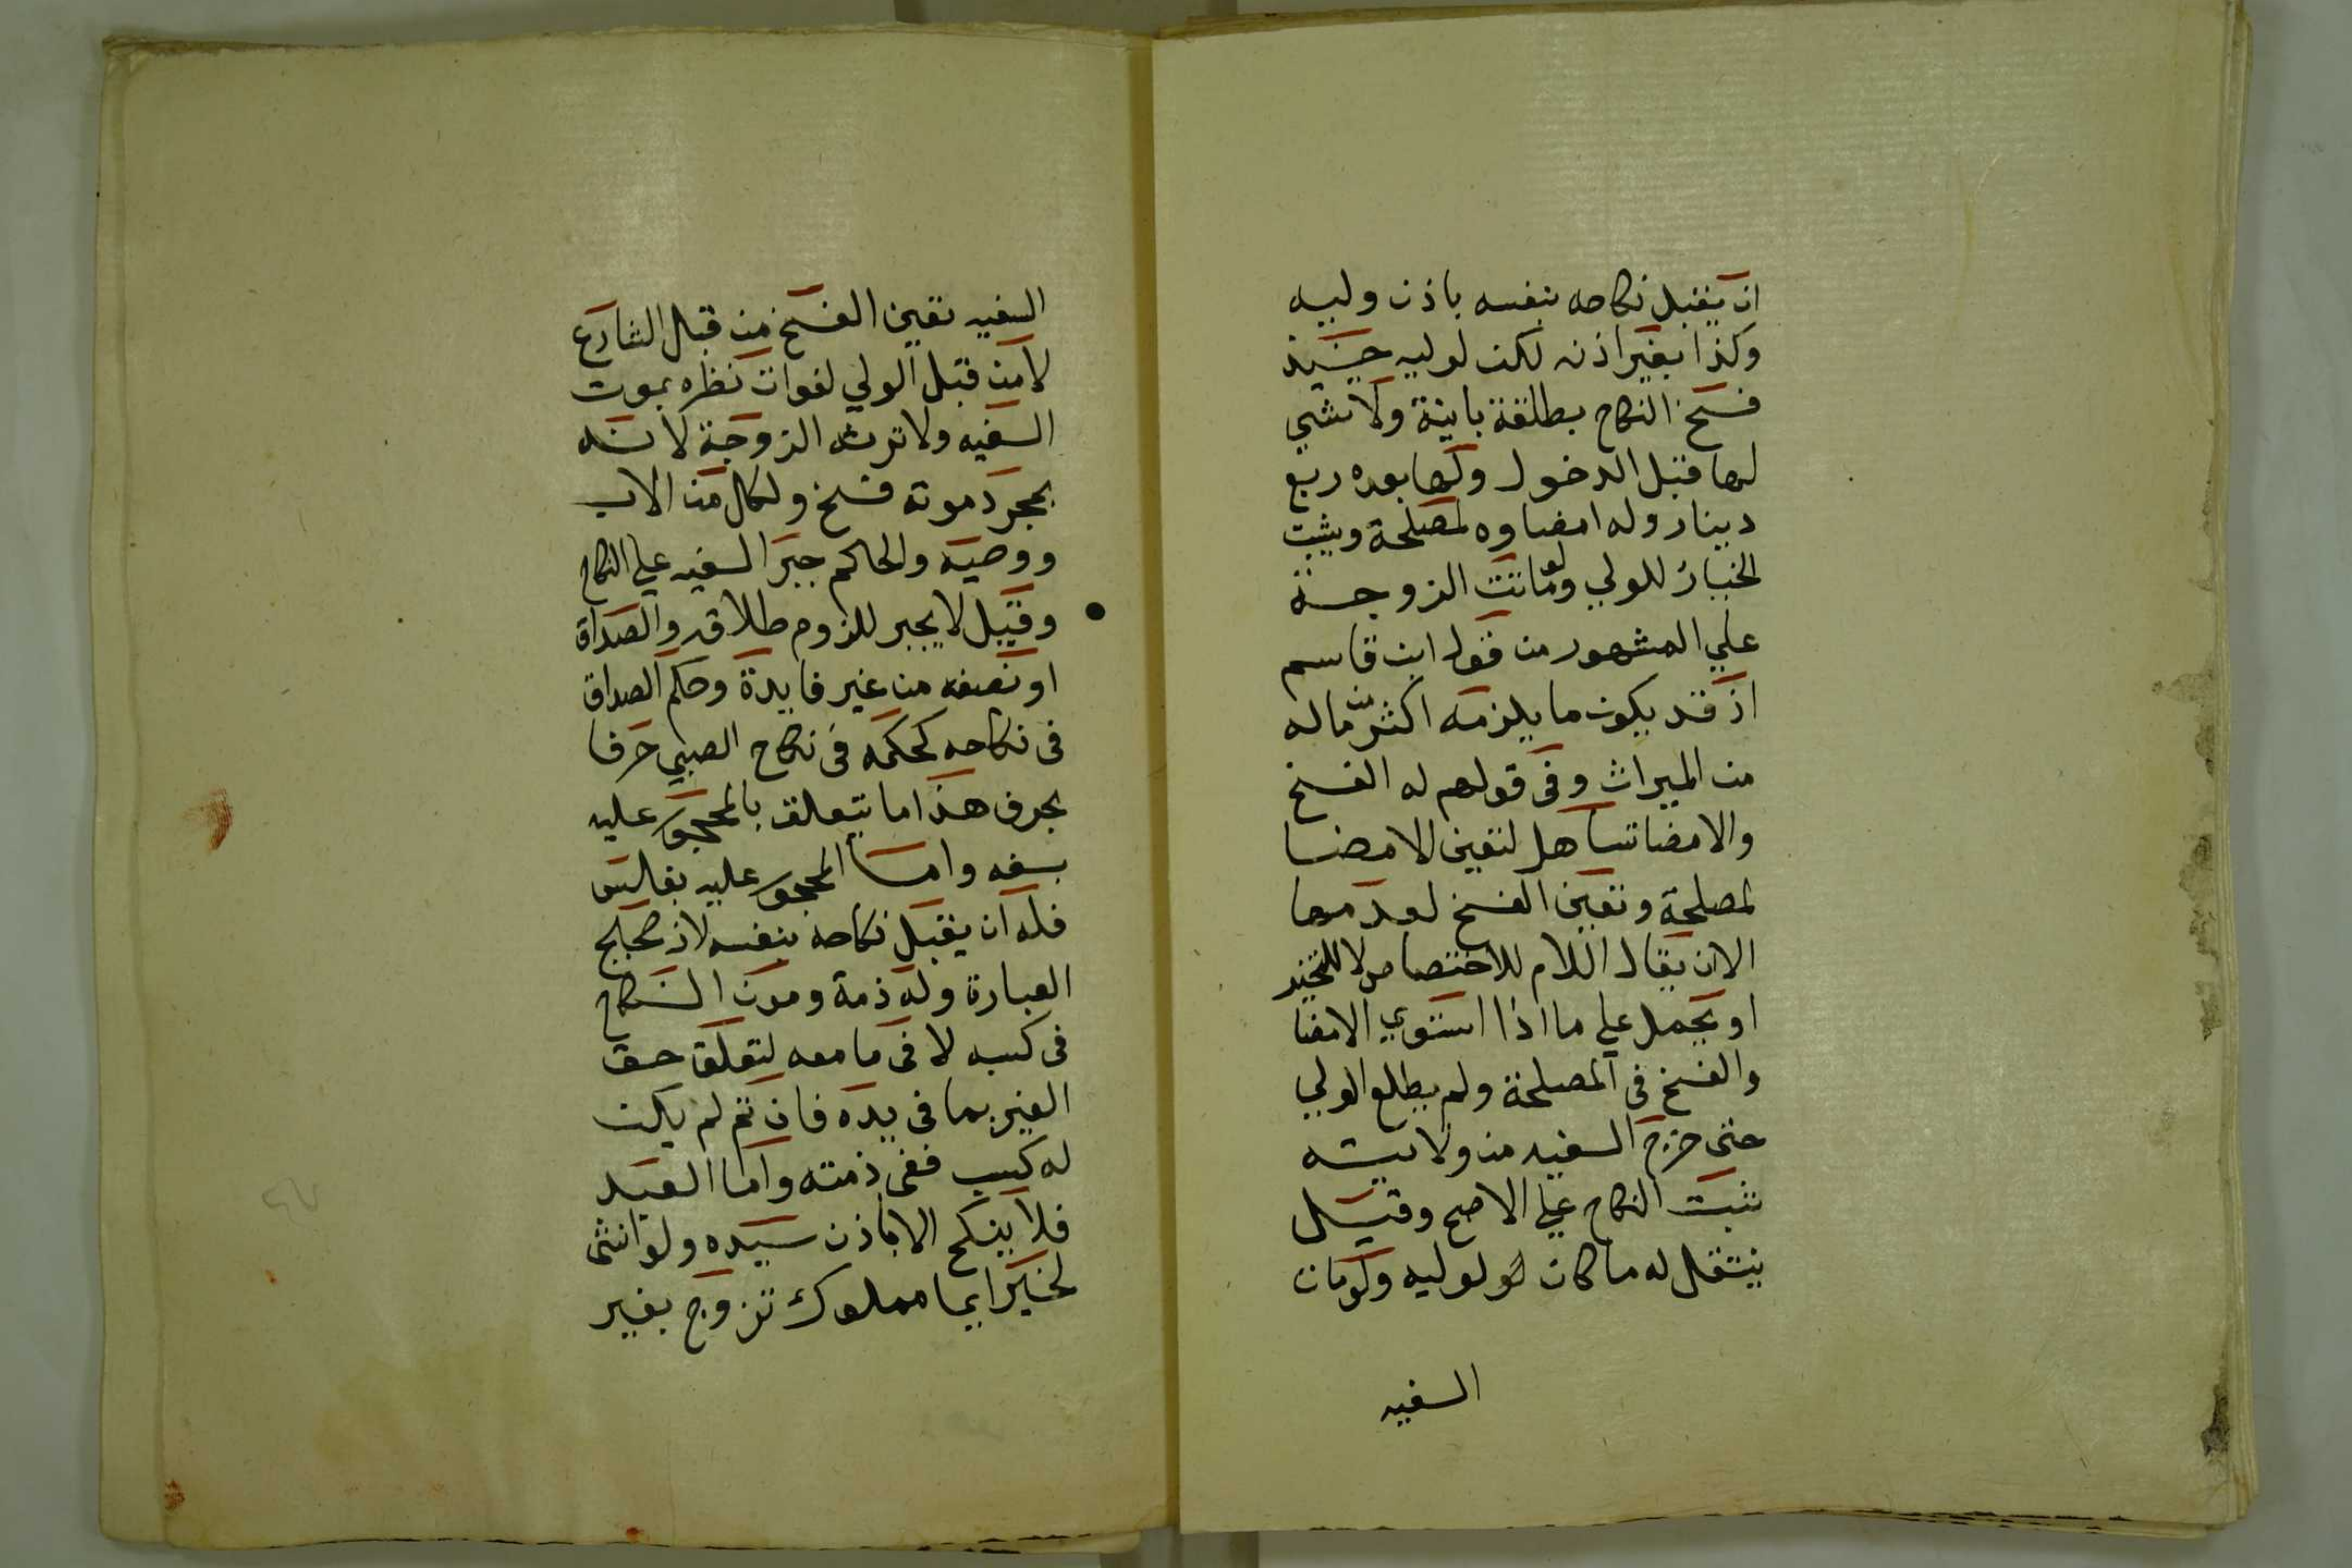 ان يقبل نكاحه بنفسه باذن وليه
وكذا بغير اذنه لكن لوليه حينيذ
فسخ النكاح بطلقة باينة ولا شي
لها قبل الدخول ولها بعده ربع
دينار وله امضاوه لمصلحة ويثبت
الخيار للولي ولو ماتت الزوجة
علي المشهور من قول ابن قاسم
اذ قد يكون ما يلزمه اكثر من ماله
من الميراث وفي قولهم له الفسخ
والامضا تساهل لتعين الامضا
لمصلحة وتعين الفسخ لعدمها
الا ان يقال اللام للاختصاص لا للتخيير
او يحمل علي ما اذا استوي الامضا
والفسخ في المصلحة ولم يطلع الولي
حتى خرج السفيه من ولايته
ثبت النكاح علي الاصح وقيل
ينتقل له ما كان لوليه ولو مات
السفيه
السفيه تعين الفسخ من قبل الشارع
لا من قبل الولي لفوات نظره بموت
السفيه ولا ترثه الزوجة لانه
بمجرد موته فسخ ولكل من الاب
ووصيه والحاكم جبر السفيه علي النكاح
وقيل لا يجبر للزوم طلاقه والصداق
او نصفه من غير فايدة وحكم الصداق
في نكاحه كحكمه في نكاح الصبي حرفا
بحرف هذا ما يتعلق بالمحجور عليه
بسفه واما المحجور عليه بفليس
فله ان يقبل نكاحه بنفسه لانه صحيح
العبارة وله ذمة ومون النكاح
في كسبه لا في ما معه لتعلق حق
الغير بما في يده فان ثم لم يكن
له كسب ففي ذمته واما العبد
فلا ينكح الا باذن سيده ولو انثى
لخبر ايما مملوك تزوج بغير